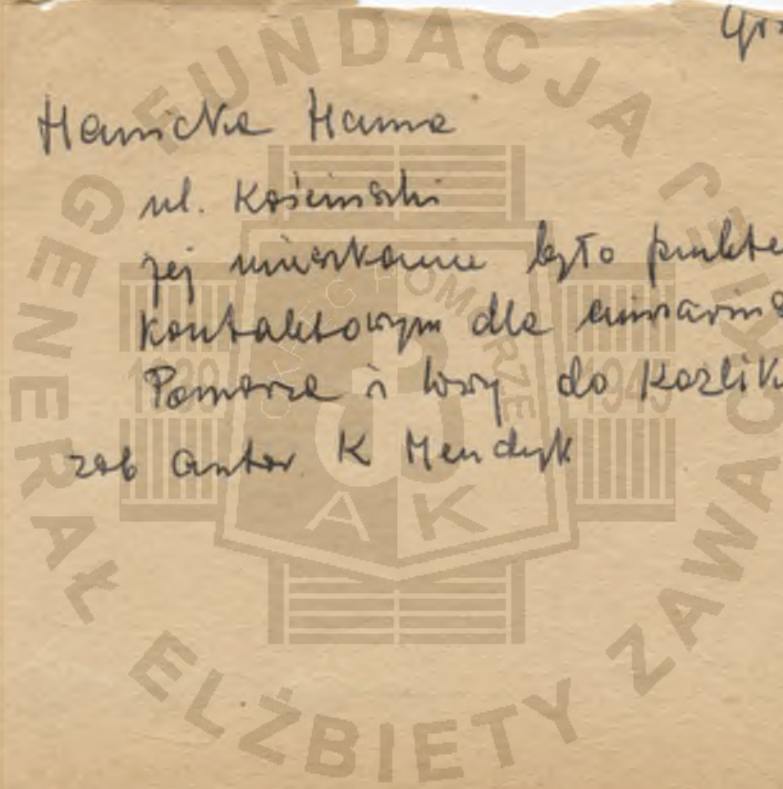 Grz
Hanicka Hanna
ul. Kościuszki
jej mieszkanie było punkte
kontaktowym dla emisariusz
Pomorza i do Kozlik
zob autor K Mendyk
FUNDACJA GENERAŁ ELŻBIETY ZAWAC
OKRĘG POMORZE
1939 1945
AK